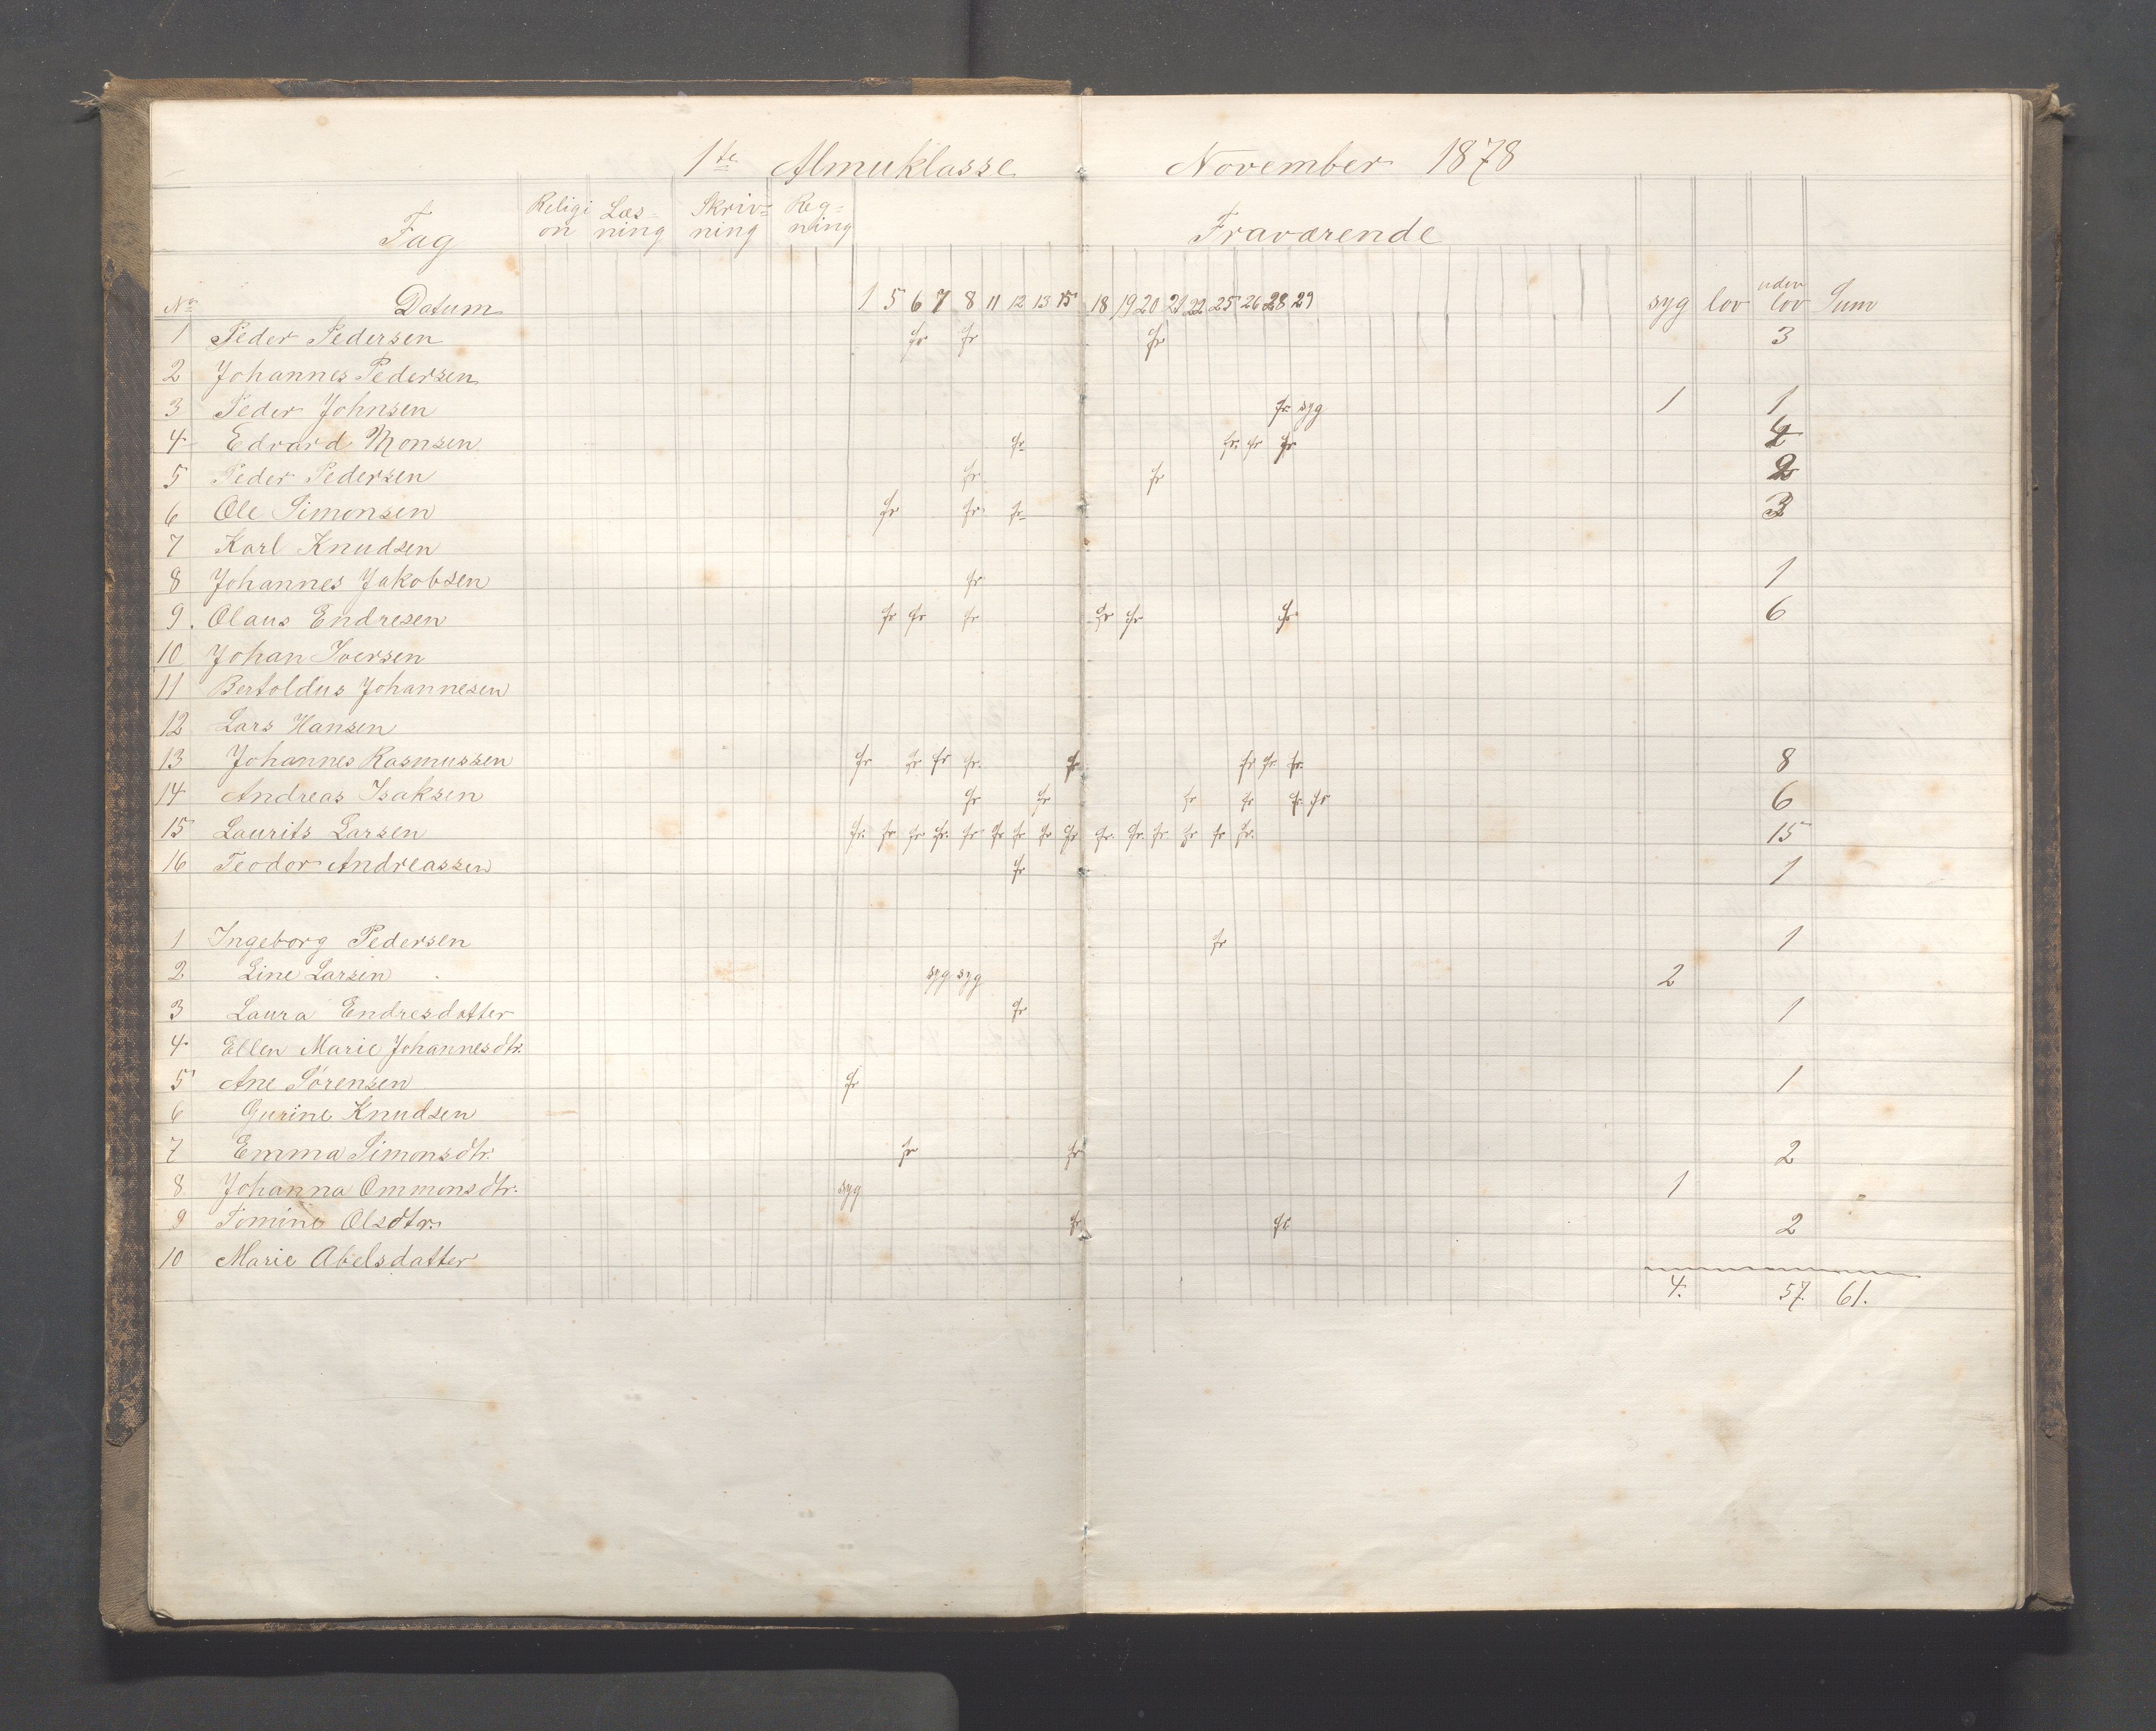 1te Almuklasse November 1878
Fag Religion Læsning Skrivning Regning Fraværende
No Datum 1 5 6 7 8 11 12 13 15 18 19 20 21 22 25 26 28 29 syg lov uden lov Sum
1 Peder Pedersen fr fr fr 3
2 Johannes Pedersen
3 Peder Johnsen fr syg 1 1
4 Edvard Monsen fr fr fr fr 4
5 Peder Pedersen fr fr 2
6 Ole Simonsen fr fr fr 3
7 Karl Knudsen
8 Johannes Jakobsen fr 1
9. Olaus Endresen fr fr fr fr fr fr 6
10 Johan Iversen
11 Bertoldus Johannesen
12 Lars Hansen
13 Johannes Rasmussen fr fr fr fr fr fr fr fr 8
14 Andreas Isaksen fr fr fr fr fr fr 6
15 Laurits Larsen fr fr fr fr fr fr fr fr fr fr fr fr fr fr fr 15
16 Teodor Andreassen fr 1
1 Ingeborg Pedersen fr 1
2 Line Larsen syg syg 2
3 Laura Endresdatter fr 1
4 Ellen Marie Johannesdtr.
5 Ane Sørensen fr 1
6 Gurine Knudsen
7 Emma Simonsdtr. fr fr 2
8 Johanna Ommonsdtr. syg 1
9 Tomine Olsdtr. fr fr 2
10 Marie Abelsdatter
4. 57. 61.